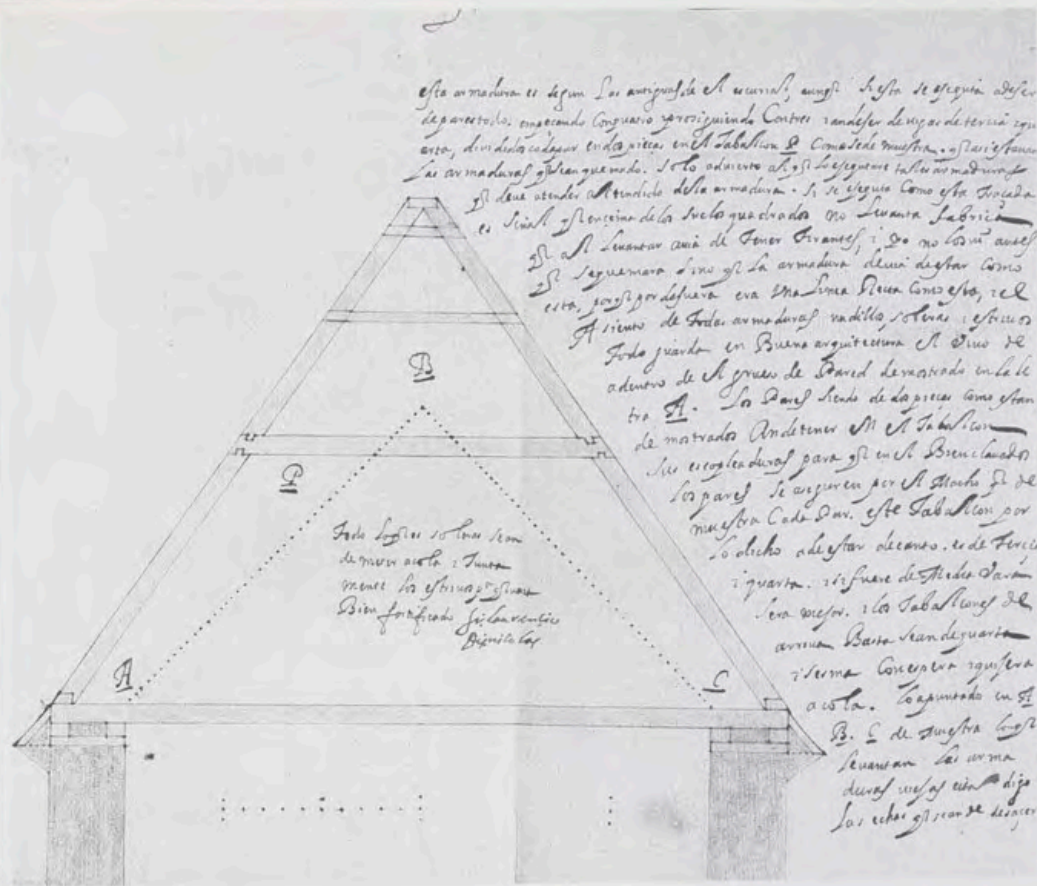 esta armadura es segun las antiguas de el escurial, aunqe si esta se egequta a de ser
de pares todo. empeçando con quatro i prosiguiendo con tres i an de ser de vigas de tercia i qu
arta, divididos cada par en dos pieças en el tabalcon P como se demuestra. qe asi estavan
las armaduras qe se an quemado. solo advierto al qe lo egequtare tales armaduras
qe deve atender al tendido desta armadura. si se egequta como esta traçada
es señal qe ençima de los suelos quadrados no levanta fabrica
qe al levantar avia de tener tirantes, i yo no los vi antes
qe se quemara sino qe la armadura devia de estar como
esta, porqe por defuera era una linea recta como esta, i el
asiento de todas armaduras nudillo, soleras i estrivos
todo guarda en buena arquitectura el vivo de
adentro de el grueso de pared demostrado en la le
tra A. los pares siendo de dos pieças como estan
demostrados an de tener en el tabalcon
sus escopleaduras para qe en el bien clavados
los pares se aseguren por el macho qe de
muestra cada par. este tabalcon por
lo dicho a de estar de canto. es de tercia
i quarta. i si fuere de media vara
sera mejor. i los tabalcones de
arriva basta sean de quarta
i sesma con espera i quijera
a cola. lo apuntado en A
B. C demuestra lo qe
levantan las arma
duras viejas digo
las echas qe se an de desaçer
B
P
todo las soleras sean
de a cola i junta
mente los estrivos
bien fortificado fr laurençio
de san nicolas
A
C